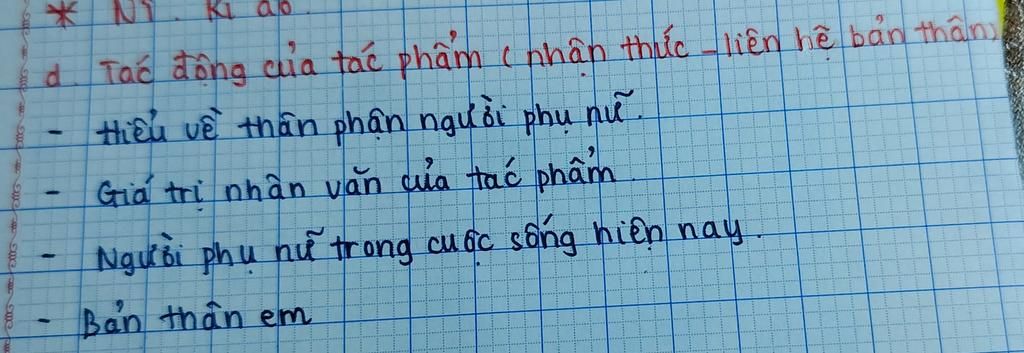 * NT. Kì ảo.
d. Tác động của tác phẩm ( nhận thức - liên hệ bản thân)
- Hiểu về thân phận người phụ nữ.
- Giá trị nhân văn của tác phẩm.
- Người phụ nữ trong cuộc sống hiện nay.
- Bản thân em